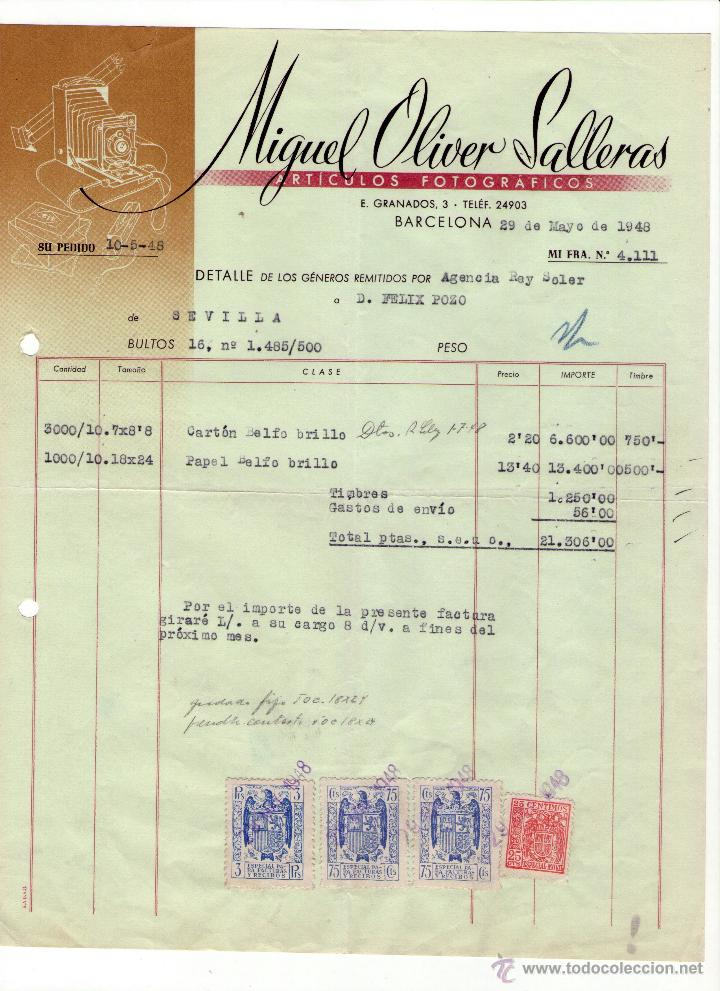 Miguel Oliver Salleras
ARTÍCULOS FOTOGRÁFICOS
E. GRANADOS, 3 · TELÉF. 24903
BARCELONA 29 de Mayo de 1948
SU PEDIDO 10-5-48
MI FRA. N.º 4.111
DETALLE DE LOS GÉNEROS REMITIDOS POR Agencia Rey Soler
a D. FELIX POZO
de SEVILLA
BULTOS 16, nº 1.485/500 PESO
Cantidad Tamaño CLASE Precio IMPORTE Timbre
3000/10.7x8'8 Cartón Belfo brillo 2'20 6.600'00 750'-
1000/10.18x24 Papel Belfo brillo 13'40 13.400'00 500'-
Timbres 1.250'00
Gastos de envío 56'00
Total ptas., s.e.u o., 21.306'00
Por el importe de la presente factura
giraré L/. a su cargo 8 d/v. a fines del
próximo mes.
1948 1948 1948 1948
Pts 3 Cts 75 Cts 75
25 CENTIMOS
25
ESPECIAL PA-
RA FACTURAS
Y RECIBOS
ESPECIAL PA-
RA FACTURAS
Y RECIBOS
ESPECIAL PA-
RA FACTURAS
Y RECIBOS
ESPECIAL MOVIL
3 Pts 75 Cts 75 Cts
www.todocoleccion.net